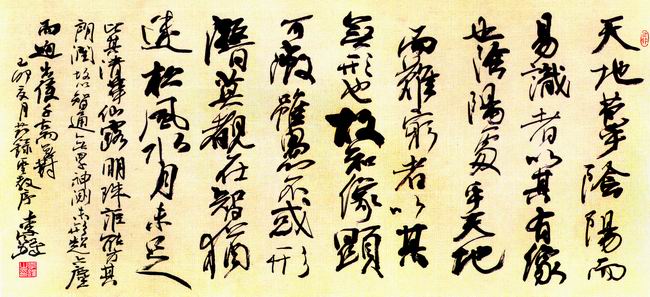 天地苞乎陰陽而
易識者以其有像
也陰陽處乎天地
而難窮者以其
無形也故知像顯
可徵雖愚不惑形
潛莫覩在智猶
迷松風水月未足
比其清華仙露明珠詎能方其
朗潤故以智通無累神測未形超六塵
而迥出隻千古無對
己卯夏月錄聖教序 李